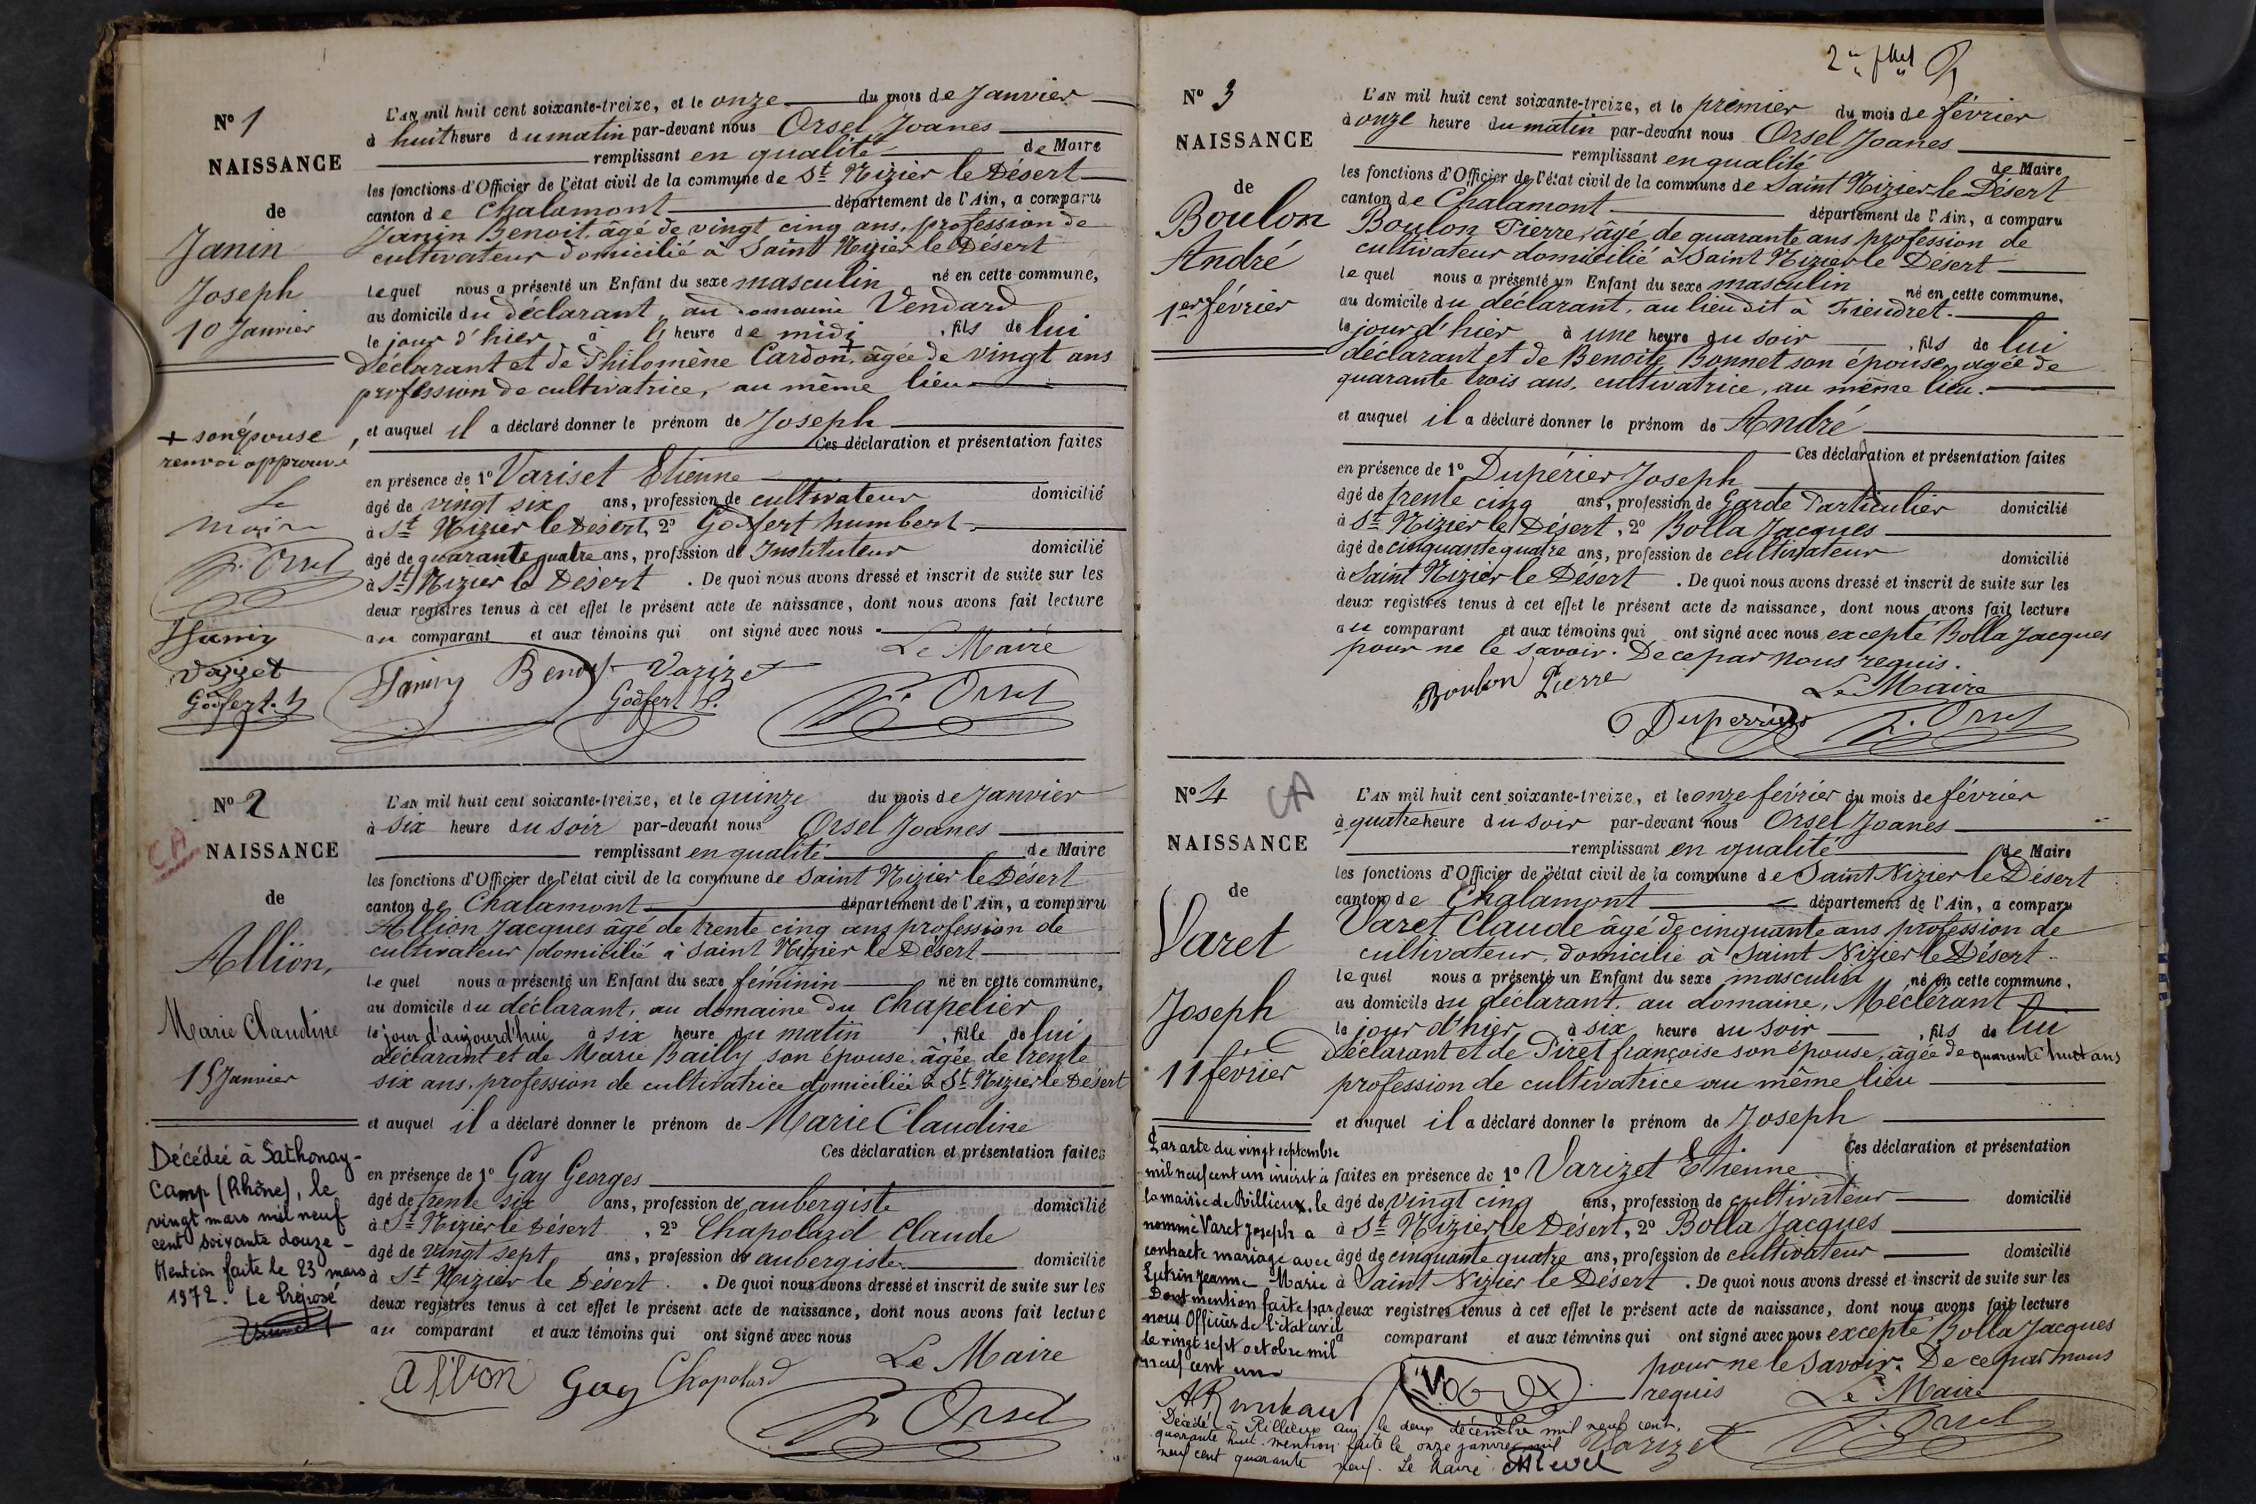 N° 1
NAISSANCE
de
Janin
Joseph
10 Janvier
L'AN mil huit cent soixante-treize, et le onze du mois de Janvier
à huit heure du matin par-devant nous Orsel Joanes
remplissant en qualité de Maire
les fonctions d'Officier de l'état civil de la commune de St Nizier le Désert
canton de Chalamont département de l'Ain, a comparu
Janin Benoit, âgé de vingt cinq ans, profession de
cultivateur domicilié à Saint Nizier le Désert
lequel nous a présenté un Enfant du sexe masculin né en cette commune,
au domicile du déclarant, au domaine Vendard
le jour d'hier à heure de midi, fils de lui
déclarant et de Philomène Cardon + âgée de vingt ans
profession de cultivatrice, au même lieu
et auquel il a déclaré donner le prénom de Joseph
Ces déclaration et présentation faites
en présence de 1° Variset Etienne
âgé de vingt six ans, profession de cultivateur domicilié
à St Nizier le Désert, 2° Godfert humbert
âgé de quarante quatre ans, profession de Instituteur domicilié
à St Nizier le Désert. De quoi nous avons dressé et inscrit de suite sur les
deux registres tenus à cet effet le présent acte de naissance, dont nous avons fait lecture
au comparant et aux témoins qui ont signé avec nous
Le Maire
Janin Benoit Varizet
Godfert h. Orsel
+ son épouse
renvoi approuvé
Le
Maire
Orsel
Janin
Varizet
Godfert. h
N° 2
CA
NAISSANCE
de
Allion,
Marie Claudine
15 Janvier
L'AN mil huit cent soixante-treize, et le quinze du mois de Janvier
à six heure du soir par-devant nous Orsel Joanes
remplissant en qualité de Maire
les fonctions d'Officier de l'état civil de la commune de Saint Nizier le Désert
canton de Chalamont département de l'Ain, a comparu
Allion Jacques âgé de trente cinq ans profession de
cultivateur domicilié à Saint Nizier le Désert
lequel nous a présenté un Enfant du sexe féminin né en cette commune,
au domicile du déclarant, au domaine du Chapelier
le jour d'aujourd'hui à six heure du matin, fille de lui
déclarant et de Marie Bailly son épouse, âgée de trente
six ans, profession de cultivatrice domiciliée à St Nizier le Désert
et auquel il a déclaré donner le prénom de Marie Claudine
Ces déclaration et présentation faites
en présence de 1° Gay Georges
âgé de trente six ans, profession de aubergiste domicilié
à St Nizier le Désert, 2° Chapolard Claude
âgé de vingt sept ans, profession de aubergiste domicilié
à St Nizier le Désert. De quoi nous avons dressé et inscrit de suite sur les
deux registres tenus à cet effet le présent acte de naissance, dont nous avons fait lecture
au comparant et aux témoins qui ont signé avec nous
Le Maire
allion Gay Chapolard
Orsel
Décédée à Sathonay-
Camp (Rhône), le
vingt mars mil neuf
cent soixante douze -
Mention faite le 23 mars
1972. Le Préposé
2me fllet
N° 3
NAISSANCE
de
Boulon
André
1er février
L'AN mil huit cent soixante-treize, et le premier du mois de février
à onze heure du matin par-devant nous Orsel Joanes
remplissant en qualité de Maire
les fonctions d'Officier de l'état civil de la commune de Saint Nizier le Désert
canton de Chalamont département de l'Ain, a comparu
Boulon Pierre, âgé de quarante ans profession de
cultivateur domicilié à Saint Nizier le Désert
lequel nous a présenté un Enfant du sexe masculin né en cette commune,
au domicile du déclarant, au lieu dit à Friendret.
le jour d'hier à une heure du soir, fils de lui
déclarant et de Benoite Bonnet son épouse, agée de
quarante trois ans, cultivatrice, au même lieu.
et auquel il a déclaré donner le prénom de André
Ces déclaration et présentation faites
en présence de 1° Dupérier Joseph
âgé de trente cinq ans, profession de Garde Particulier domicilié
à St Nizier le Désert, 2° Bolla Jacques
âgé de cinquante quatre ans, profession de cultivateur domicilié
à Saint Nizier le Désert. De quoi nous avons dressé et inscrit de suite sur les
deux registres tenus à cet effet le présent acte de naissance, dont nous avons fait lecture
au comparant et aux témoins qui ont signé avec nous excepté Bolla Jacques
pour ne le savoir. De ce par nous requis.
Boulon Pierre Le Maire
Duperrier Orsel
N° 4
CA
NAISSANCE
de
Varet
Joseph
11 février
L'AN mil huit cent soixante-treize, et le onze février du mois de février
à quatre heure du soir par-devant nous Orsel Joanes
remplissant en qualité de Maire
les fonctions d'Officier de l'état civil de la commune de Saint Nizier le Désert
canton de Chalamont département de l'Ain, a comparu
Varet Claude âgé de cinquante ans profession de
cultivateur, domicilié à Saint Nizier le Désert
lequel nous a présenté un Enfant du sexe masculin né en cette commune,
au domicile du déclarant, au domaine, Méclérant
le jour d'hier, à six heure du soir, fils de lui
déclarant et de Piret françoise son épouse, âgée de quarante huit ans
profession de cultivatrice au même lieu
et auquel il a déclaré donner le prénom de Joseph
Ces déclaration et présentation
faites en présence de 1° Varizet Etienne
âgé de vingt cinq ans, profession de cultivateur domicilié
à St Nizier le Désert, 2° Bolla Jacques
âgé de cinquante quatre ans, profession de cultivateur domicilié
à Saint Nizier le Désert. De quoi nous avons dressé et inscrit de suite sur les
deux registres tenus à cet effet le présent acte de naissance, dont nous avons fait lecture
a comparant et aux témoins qui ont signé avec nous excepté Bolla Jacques
pour ne le savoir. De ce par nous
requis Le Maire
Varizet Orsel
Par acte du vingt septembre
mil neuf cent un inscrit à
la mairie de Rillieux, le
nommé Varet Joseph a
contracté mariage avec
Jeanne Marie
Dont mention faite par
nous Officier de l'état civil
le vingt sept octobre mil
neuf cent un
Décédé à Rillieux Ain, le deux décembre mil neuf cent
quarante huit. mention faite le onze janvier mil
neuf cent quarante neuf. Le Maire